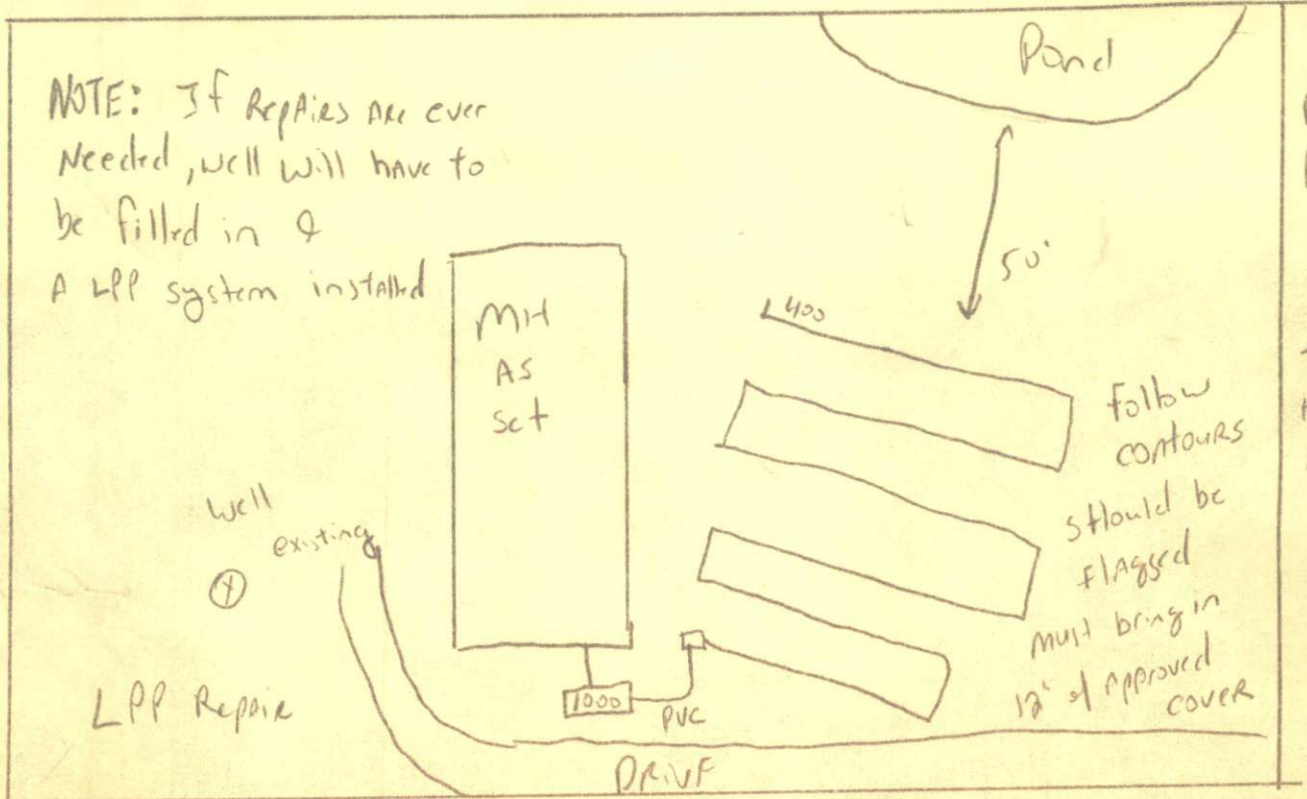 Pond
NOTE: If Repairs Are ever
Needed, well will have to
be filled in &
A LPP system installed
50'
MH
AS
Set
400
Follow
contours
should be
flagged
must bring in
12" of Approved
cover
Well
existing
LPP Repair
1000
PVC
DRIVE